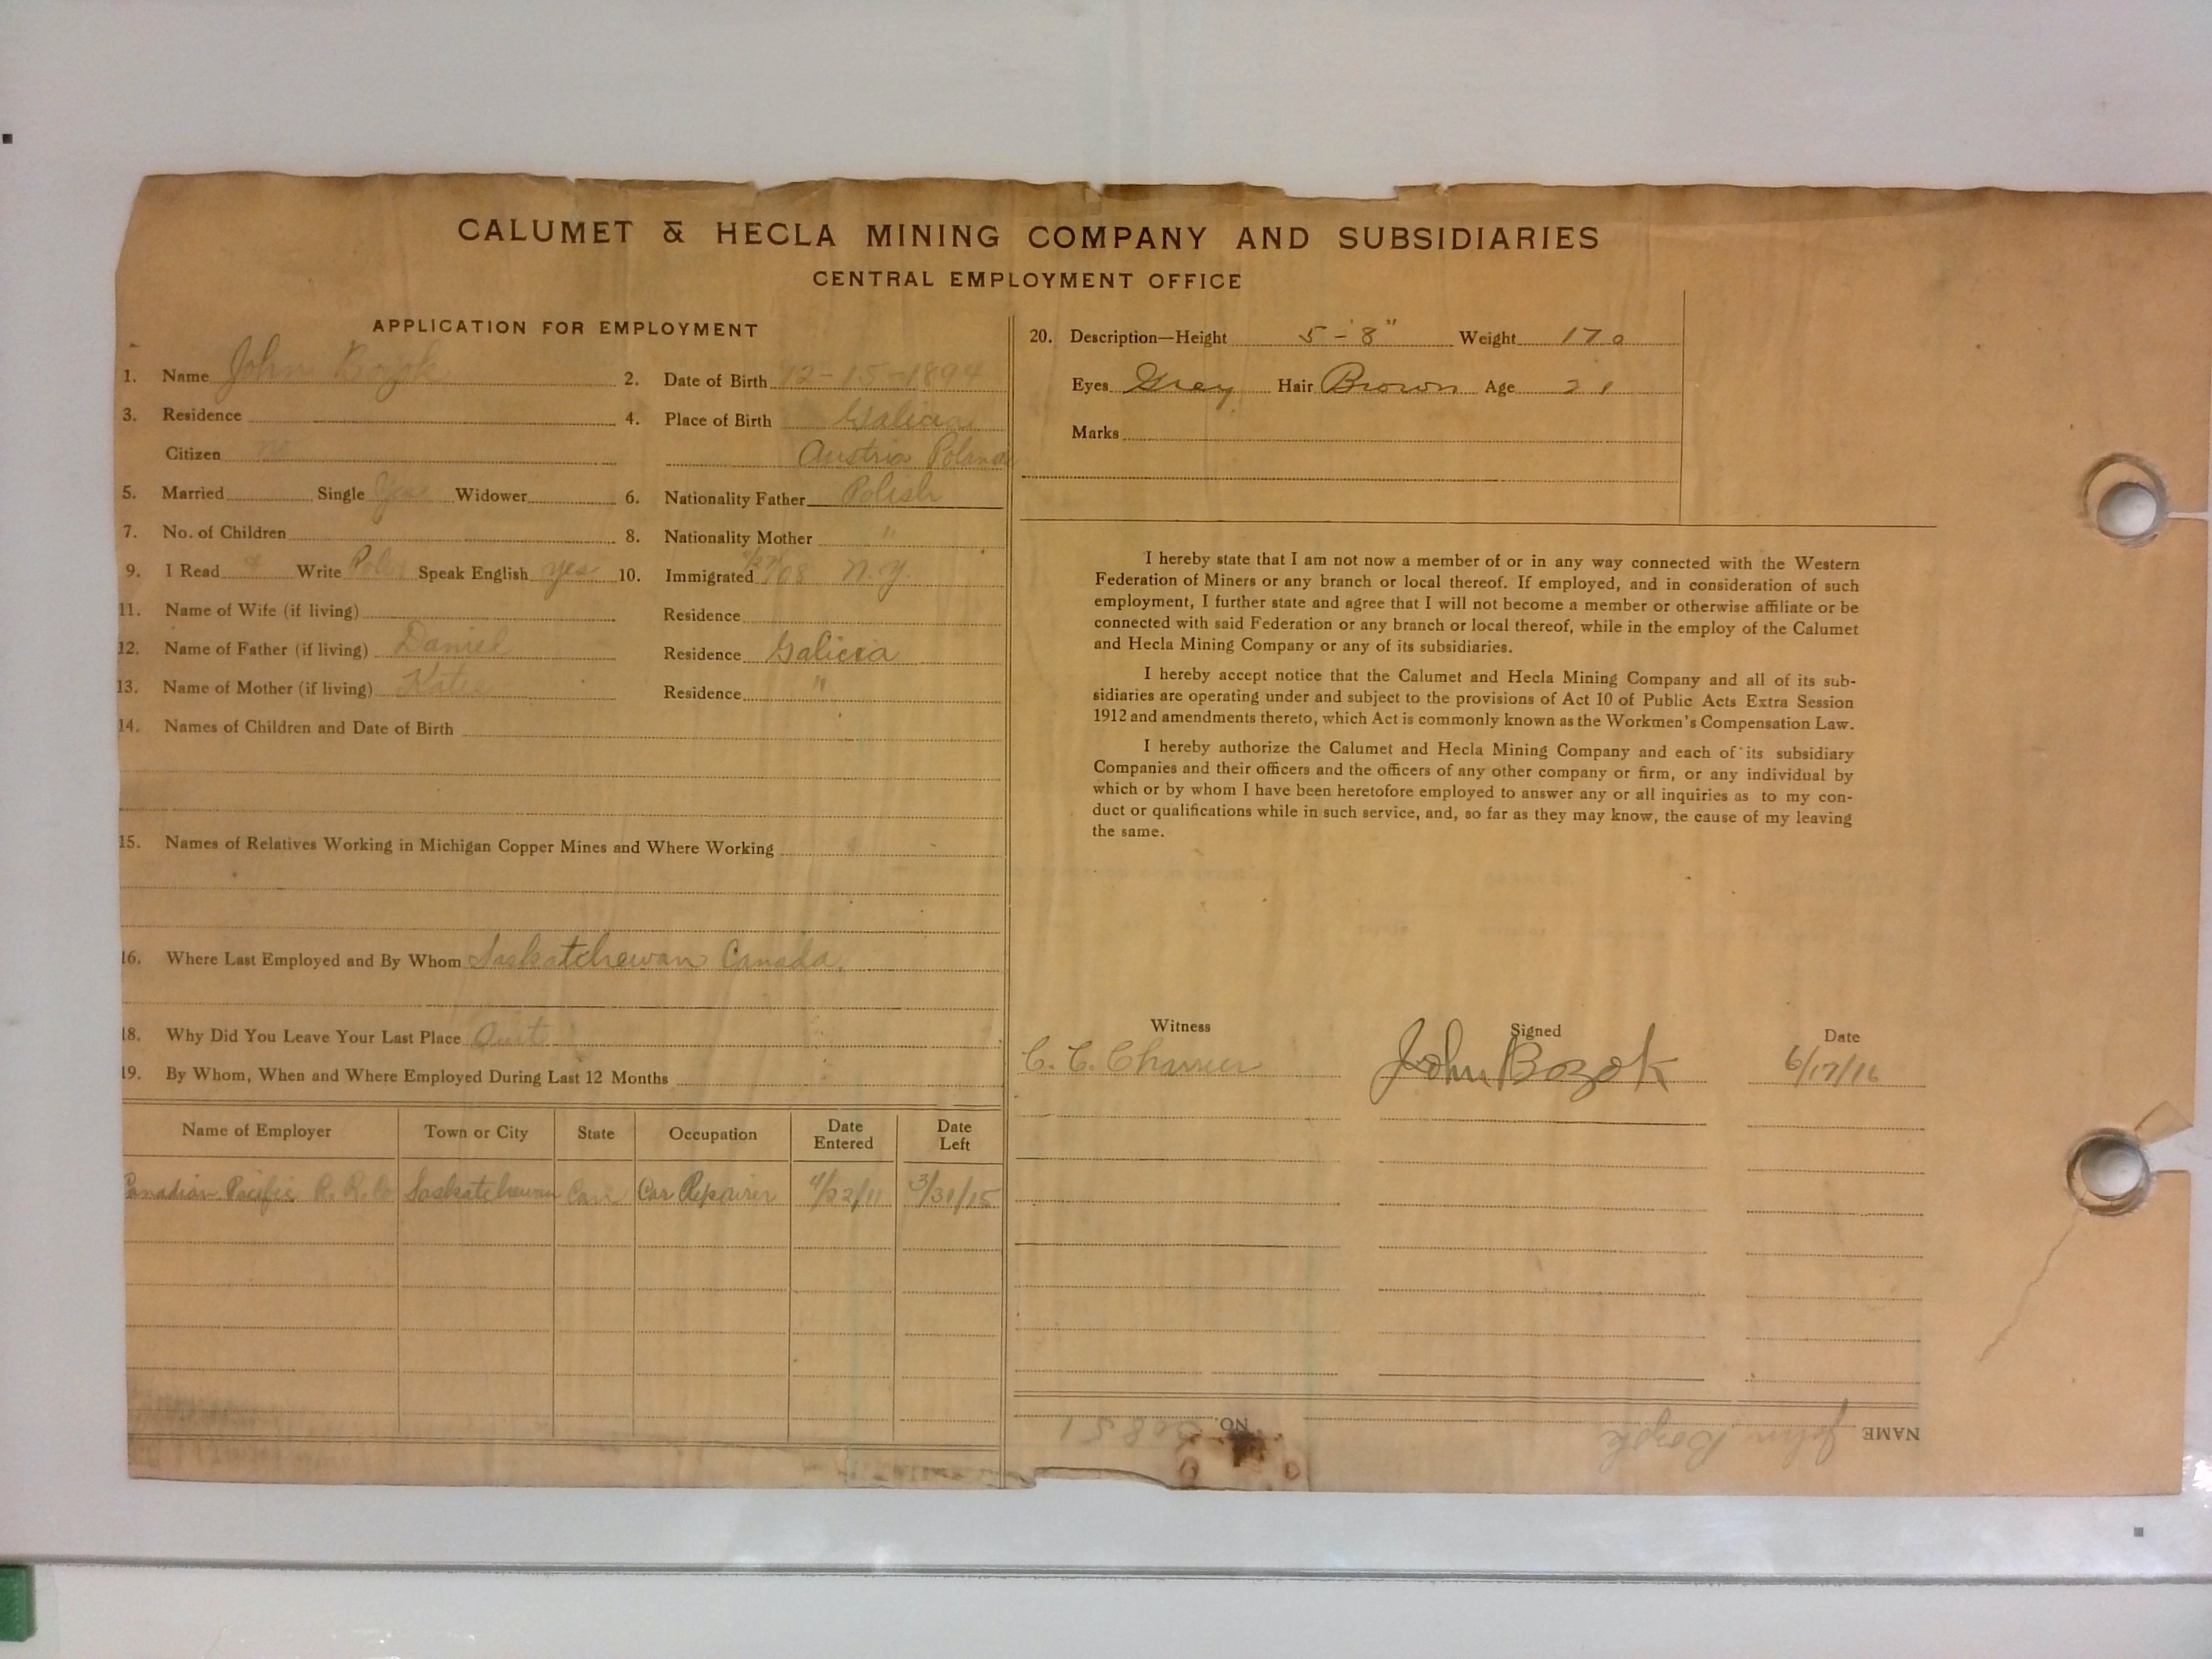 CALUMET & HECLA MINING COMPANY AND SUBSIDIARIES
CENTRAL EMPLOYMENT OFFICE
APPLICATION FOR EMPLOYMENT
1. Name John Bozok 2. Date of Birth 12-15-1894
3. Residence 4. Place of Birth Galicia
Citizen no Austria Poland
5. Married Single Yes Widower 6. Nationality Father Polish
7. No. of Children 8. Nationality Mother "
9. I Read & Write Polish Speak English yes 10. Immigrated /08 N.Y.
11. Name of Wife (if living) Residence
12. Name of Father (if living) Daniel Residence Galicia
13. Name of Mother (if living) Katie Residence "
14. Names of Children and Date of Birth
15. Names of Relatives Working in Michigan Copper Mines and Where Working
16. Where Last Employed and By Whom Saskatchewan Canada.
18. Why Did You Leave Your Last Place Quit
19. By Whom, When and Where Employed During Last 12 Months
Name of Employer Town or City State Occupation Date Entered Date Left
Canadian Pacific R. R. Co Saskatchewan Can Car Repairer 4/22/11 3/31/15
20. Description—Height 5-8" Weight 170
Eyes Grey Hair Brown Age 21
Marks
I hereby state that I am not now a member of or in any way connected with the Western
Federation of Miners or any branch or local thereof. If employed, and in consideration of such
employment, I further state and agree that I will not become a member or otherwise affiliate or be
connected with said Federation or any branch or local thereof, while in the employ of the Calumet
and Hecla Mining Company or any of its subsidiaries.
I hereby accept notice that the Calumet and Hecla Mining Company and all of its sub-
sidiaries are operating under and subject to the provisions of Act 10 of Public Acts Extra Session
1912 and amendments thereto, which Act is commonly known as the Workmen's Compensation Law.
I hereby authorize the Calumet and Hecla Mining Company and each of its subsidiary
Companies and their officers and the officers of any other company or firm, or any individual by
which or by whom I have been heretofore employed to answer any or all inquiries as to my con-
duct or qualifications while in such service, and, so far as they may know, the cause of my leaving
the same.
Witness Signed Date
C. C. John Bozok 6/17/16
NAME John Bozok NO.